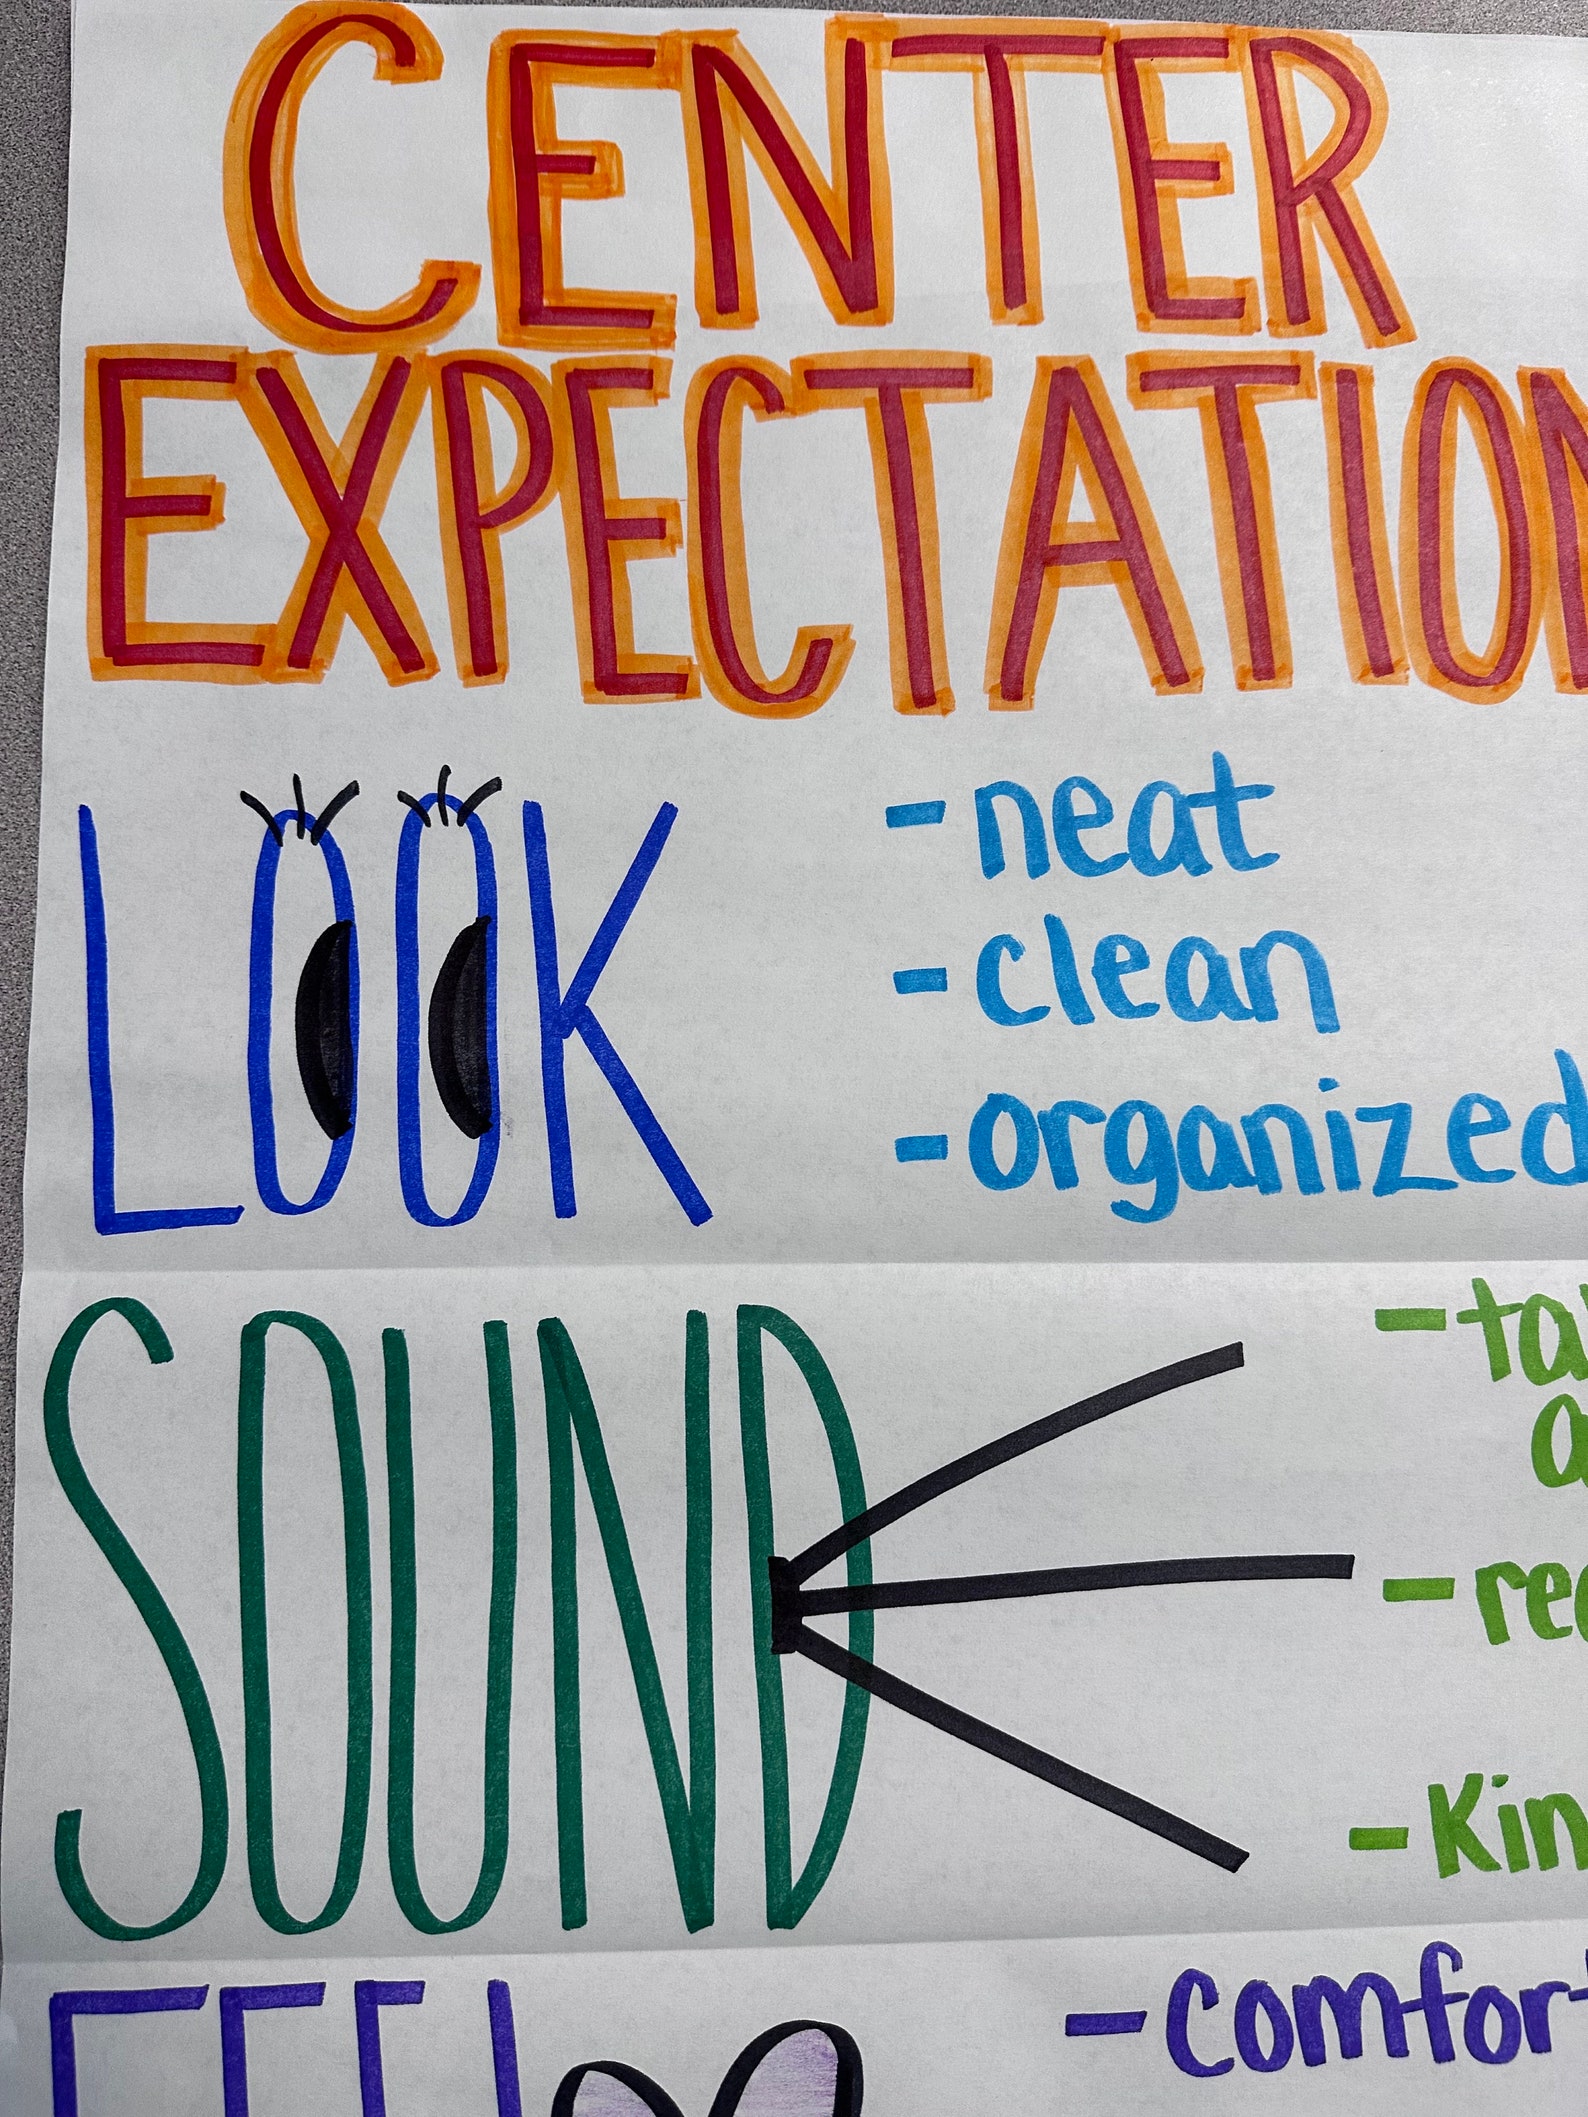 CENTER
EXPECTATION
LOOK
- neat
- clean
- organized
SOUND
- Kin
FEEL
- comfort